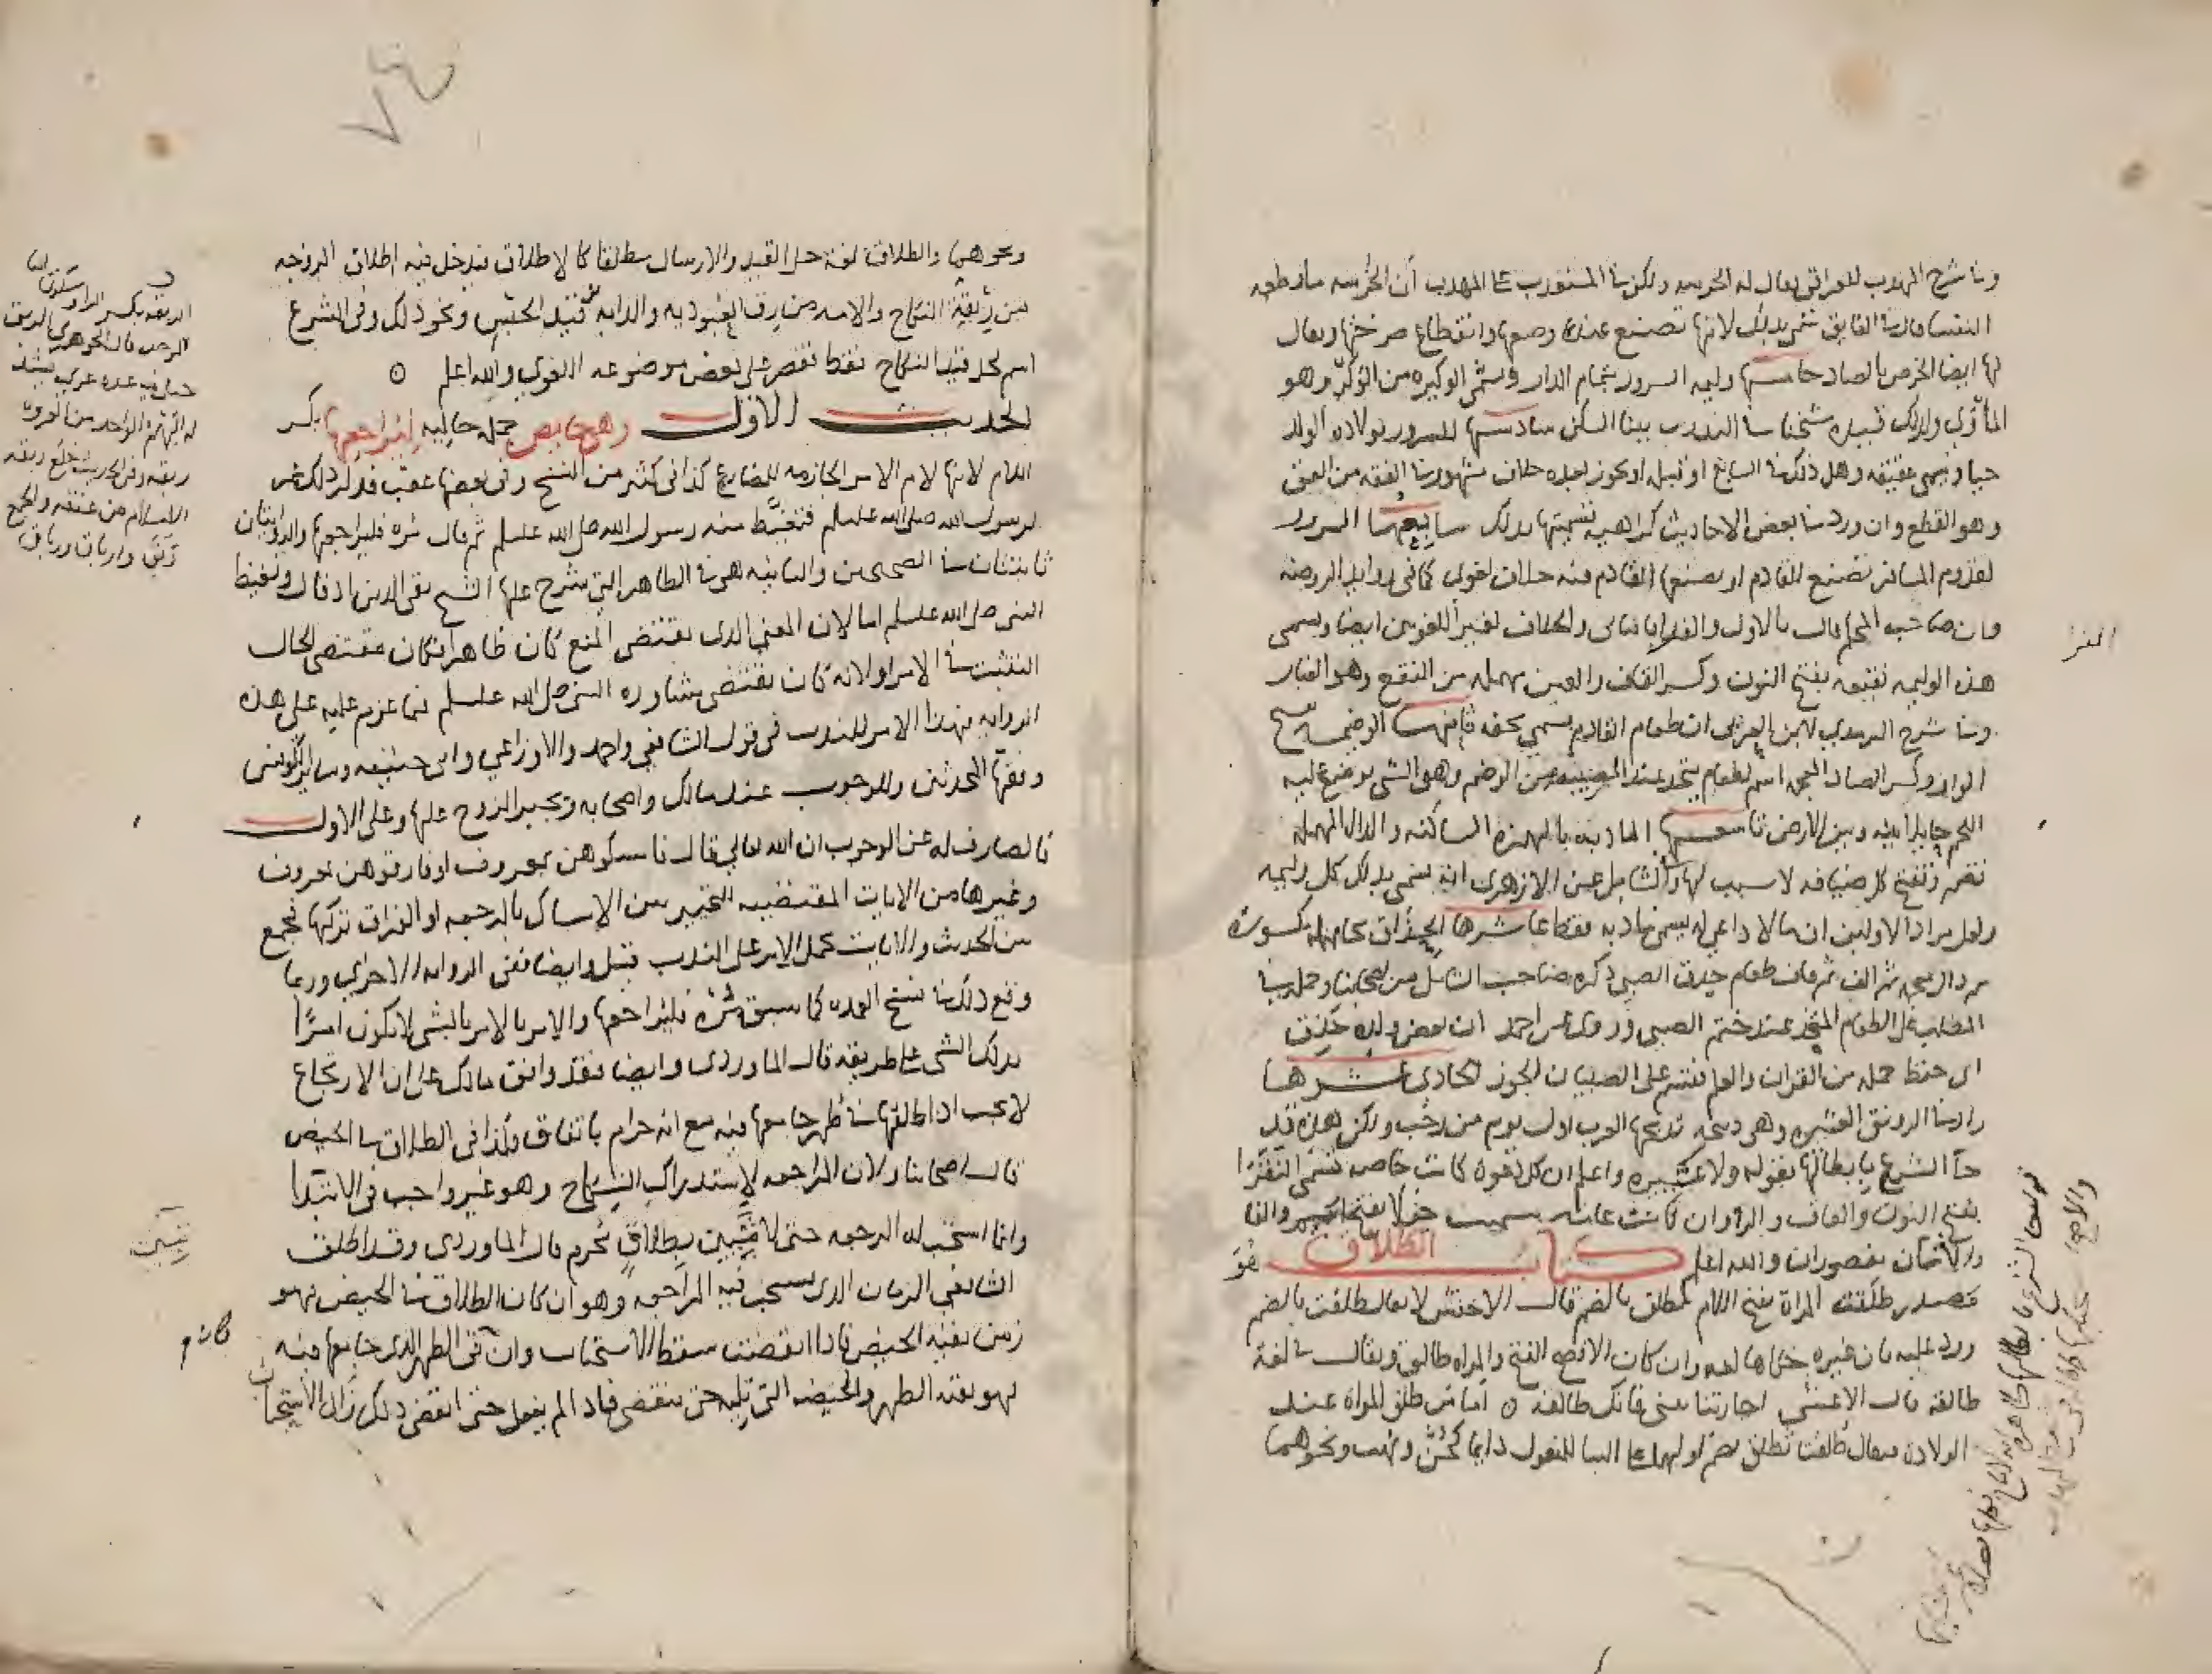 وفي شرح المهذب للعراقي يقال له الخرسه ولكن في المستعذب على المهذب أن الخُرسه ما تطعمه
النفسا قال في الفايق سمي بذلك لانها تصنع عند وضعها وانقطاع صرختها ويقال
لها ايضا الخرص بالصاد خامسها وليمه السرور بتمام الدار وتسمى الوكيره من الوَكر وهو
المأوى ولذلك قيده شيخنا في التدريب ببنا السكن سادسها للسرور بولاده الولد
حيا وتسمى عقيقه وهل ذلك في السابع او قبله او يجوز بعده خلاف مشهور في الفقه من العق
وهو القطع وان ورد في بعض الاحاديث كراهيه تسميتها بذلك سابعها السرور
لقدوم المسافر تصنع للقادم او يصنعها القادم فيه خلاف لغوي كما في زوايد الروضه
وان صاحب المحكم قال بالاول والفرا بالثاني والخلاف لغير اللغويين ايضا ويسمى
هذه الوليمه نقيعه بفتح النون وكسر القاف والعين مهمله من النقع وهو الغبار
وفي شرح الترمدي لابن العربي ان طعام القادم يسمى تحفه ثامنها الوضيمه بفتح
الواو وكسر الضاد المعجمه اسم لطعام يتخذ عند المصيبه من الوضم وهو الشي يوضع عليه
اللحم حايلا بينه وبين الارض تاسعها المادبه بالهمزه الساكنه والدال المهمله
تضم وتفتح كل ضيافه لا سبب لها وفي الشامل عن الازهرى انه يسمى بذلك كل وليمه
ولعل مراد الاولين ان ما لا داعي له يسمى مادبه فقط عاشرها الحِذَاق بحا مهمله مكسورة
ثم دال معجمه ثم الف ثم قاف طعام حذق الصبي ذكره صاحب الشامل من اصحابنا وحمله في
المطلب على الطعام المتخذ عند ختم الصبي وروى عن احمد ان بعض ولده حَذَق
اى حفظ جمله من القران والعلم فقسم على الصبيان الجوز الحادي عشرها
زاد في الرونق العتيره وهي ذبيحه تذبحها العرب اول يوم من رجب ولكن هذه قد
جآ الشرع بابطالها بقوله ولا عتيره واعلم ان كل دعوة كانت خاصه تسمى النَقَرَا
بفتح النون والقاف والرا وان كانت عامه سميت جفلا بفتح الجيم والفا
والالفان مقصوران والله اعلم كتاب الطلاق هُوَ
مَصدر طلَقت المراة بفتح اللام تطلق بالضم قال الاخفش لا يقال طلقت بالضم
ورد عليه بان غيره حكاها لغه وان كان الافصح الفتح والمراه طالق ويقال في لغة
طالقه قال الاعشى اجارتنا بيني فانك طالقه ⊙ اما من طلق المراه عند
الولاده فيقال طُلقت تُطلق بضم اولهما على البنا للمفعول دايما كجُنّ وبُهت ونحوهما
الفرا
ونحوهما والطلاق لغة حل القيد والارسال مطلقا كالاطلاق فيدخل فيه اطلاق الزوجه
من رِبقِة النكاح والامه من رِق العبوديه والدابه من قيد الحبس ونحو ذلك وفي الشرع
اسم لحل قيد النكاح فقط فقصر على بعض موضوعه اللغوي والله اعلم ⊙
الحديث الاول وهي حايض جمله حاليه ليُراجعها بكسر
اللام لانها لام الامر الجازمه للمضارع كذا في كثير من النسخ وفي بعضها عقب فذكر ذلك عمر
لرسول الله صلى الله عليه وسلم فتغيَّط منه رسول الله صلى الله عليه وسلم ثم قال مُره فليراجعها والروايتان
ثابتتان في الصحيحين والثانيه هي في الظاهر التي شرح عليها الشيخ تقي الدين اذ قال وتغيظ
النبي صلى الله عليه وسلم اما لان المعنى الذى يقتضى المنع كان ظاهرا فكان مقتضى الحال
التثبت في الامر او لانه كان يقتضى مشاوره النبي صلى الله عليه وسلم فيما عزم عليه على هذه
الروايه فهذا الامر للندب في قول الشافعي واحمد والاوزاعي وابي حنيفه وساير الكوفيين
وفقها المحدثين وللوجوب عند مالك واصحابه ويجبر الزوج عليها وعلى الاول
فالصارف له عن الوجوب ان الله تعالى قال فامسكوهن بمعروف او فارقوهن بمعروف
وغيرها من الايات المقتضيه للتخيير بين الامساك بالرجعه او الفراق بتركها فجمع
بين الحديث والايات بحمل الامر على الندب قيل وايضا ففي الروايه الاخرى وربما
وقع ذلك في نسخ العمده كما سبق مُرْهُ فليُراجعها والامر بالامر بالشي لا يكون امرًا
بذلك الشي على طريقه قال الماوردى وايضا فقد وافق مالك على ان الارتجاع
لا يجب اذا طلقها في طهر جامعها فيه مع انه حرام باتفاق فكذا في الطلاق في الحيض
قال اصحابنا ولان المراجعه لاستدراك النكاح وهو غير واجب في الابتدا
وانما استحب له الرجعه حتى لا تَبِين بطلاقٍ مُحرم قال الماوردى وقد اطلق
الشافعي الزمان الذى يستحب فيه المراجعه وهو ان كان الطلاق في الحيض فهو
زمن بقيه الحيض فاذا انقضت سقط الاستحباب وان كان في الطهر الذى جامعها فيه
فهو بقيه الطهر والحيضه التى تليه حتى تنقضي فاذا لم يفعل حتى انقضى ذلك زال الاستحباب
الربقه بكسر الراء وسكون البا
الموحده قال الجوهرى الربق
حبل فيه عدة عرى يشد
به البهم الواحده من العروه
ربقه وفي الحديث خلع ربقه
الاسلام من عنقه والجمع
رِبَق وارباق ورباق
تبين